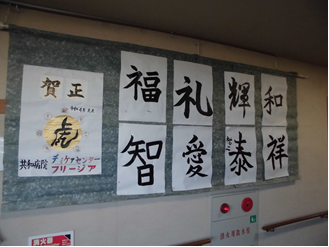 賀正
虎
共和病院
デイケアセンター
フリージア
福
礼
輝
和
智
愛
泰
祥
消火器